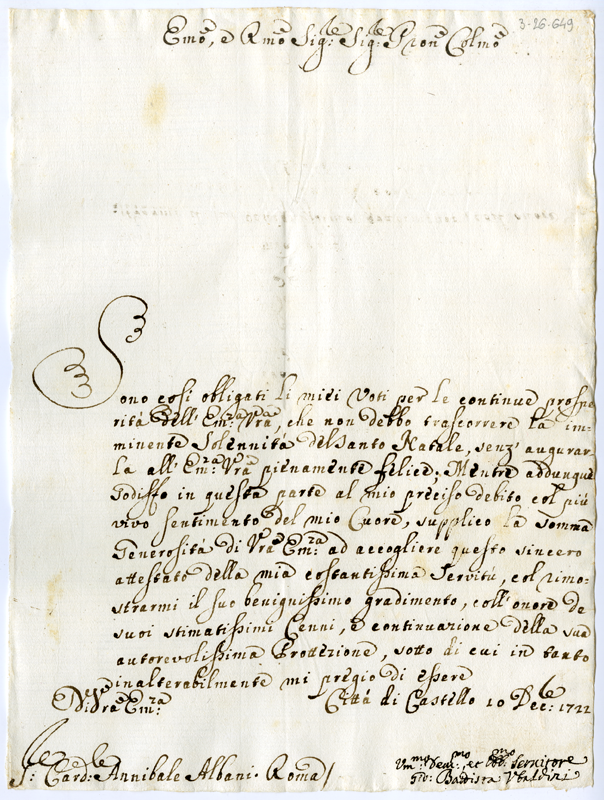 3-26-649
Emõ, e Rmõ Sig.re Sig.re P̃ron Colmõ
Sono così obligati li miei Voti per le continue prospe
rità dell' Em.za Vrã, che non debbo trascorrere la im-
minente Solennità del Santo Natale, senz' augurar
la all' Em.za Vrã pienamente felice; Mentre addunque
sodisfo in questa parte al mio preciso debito col più
vivo sentimento del mio Cuore, supplico la somma
Generosità di Vrã Em.za ad accogliere questo sincero
attestato della mia costantissima Servitù, col rimo-
strarmi il suo benignissimo gradimento, coll' onore de
suoi stimatissimi Cenni, e continuazione della sua
autorevolissima Protezione, sotto di cui in tanto
inalterabilmente mi pregio di essere
D. Vrã Em.za
Città di Castello 10 Dec.bre 1722
S.r Card.le Annibale Albani. Roma/
Um.mo Dev.mo, et Obb.mo Servitore
Gio: Battista